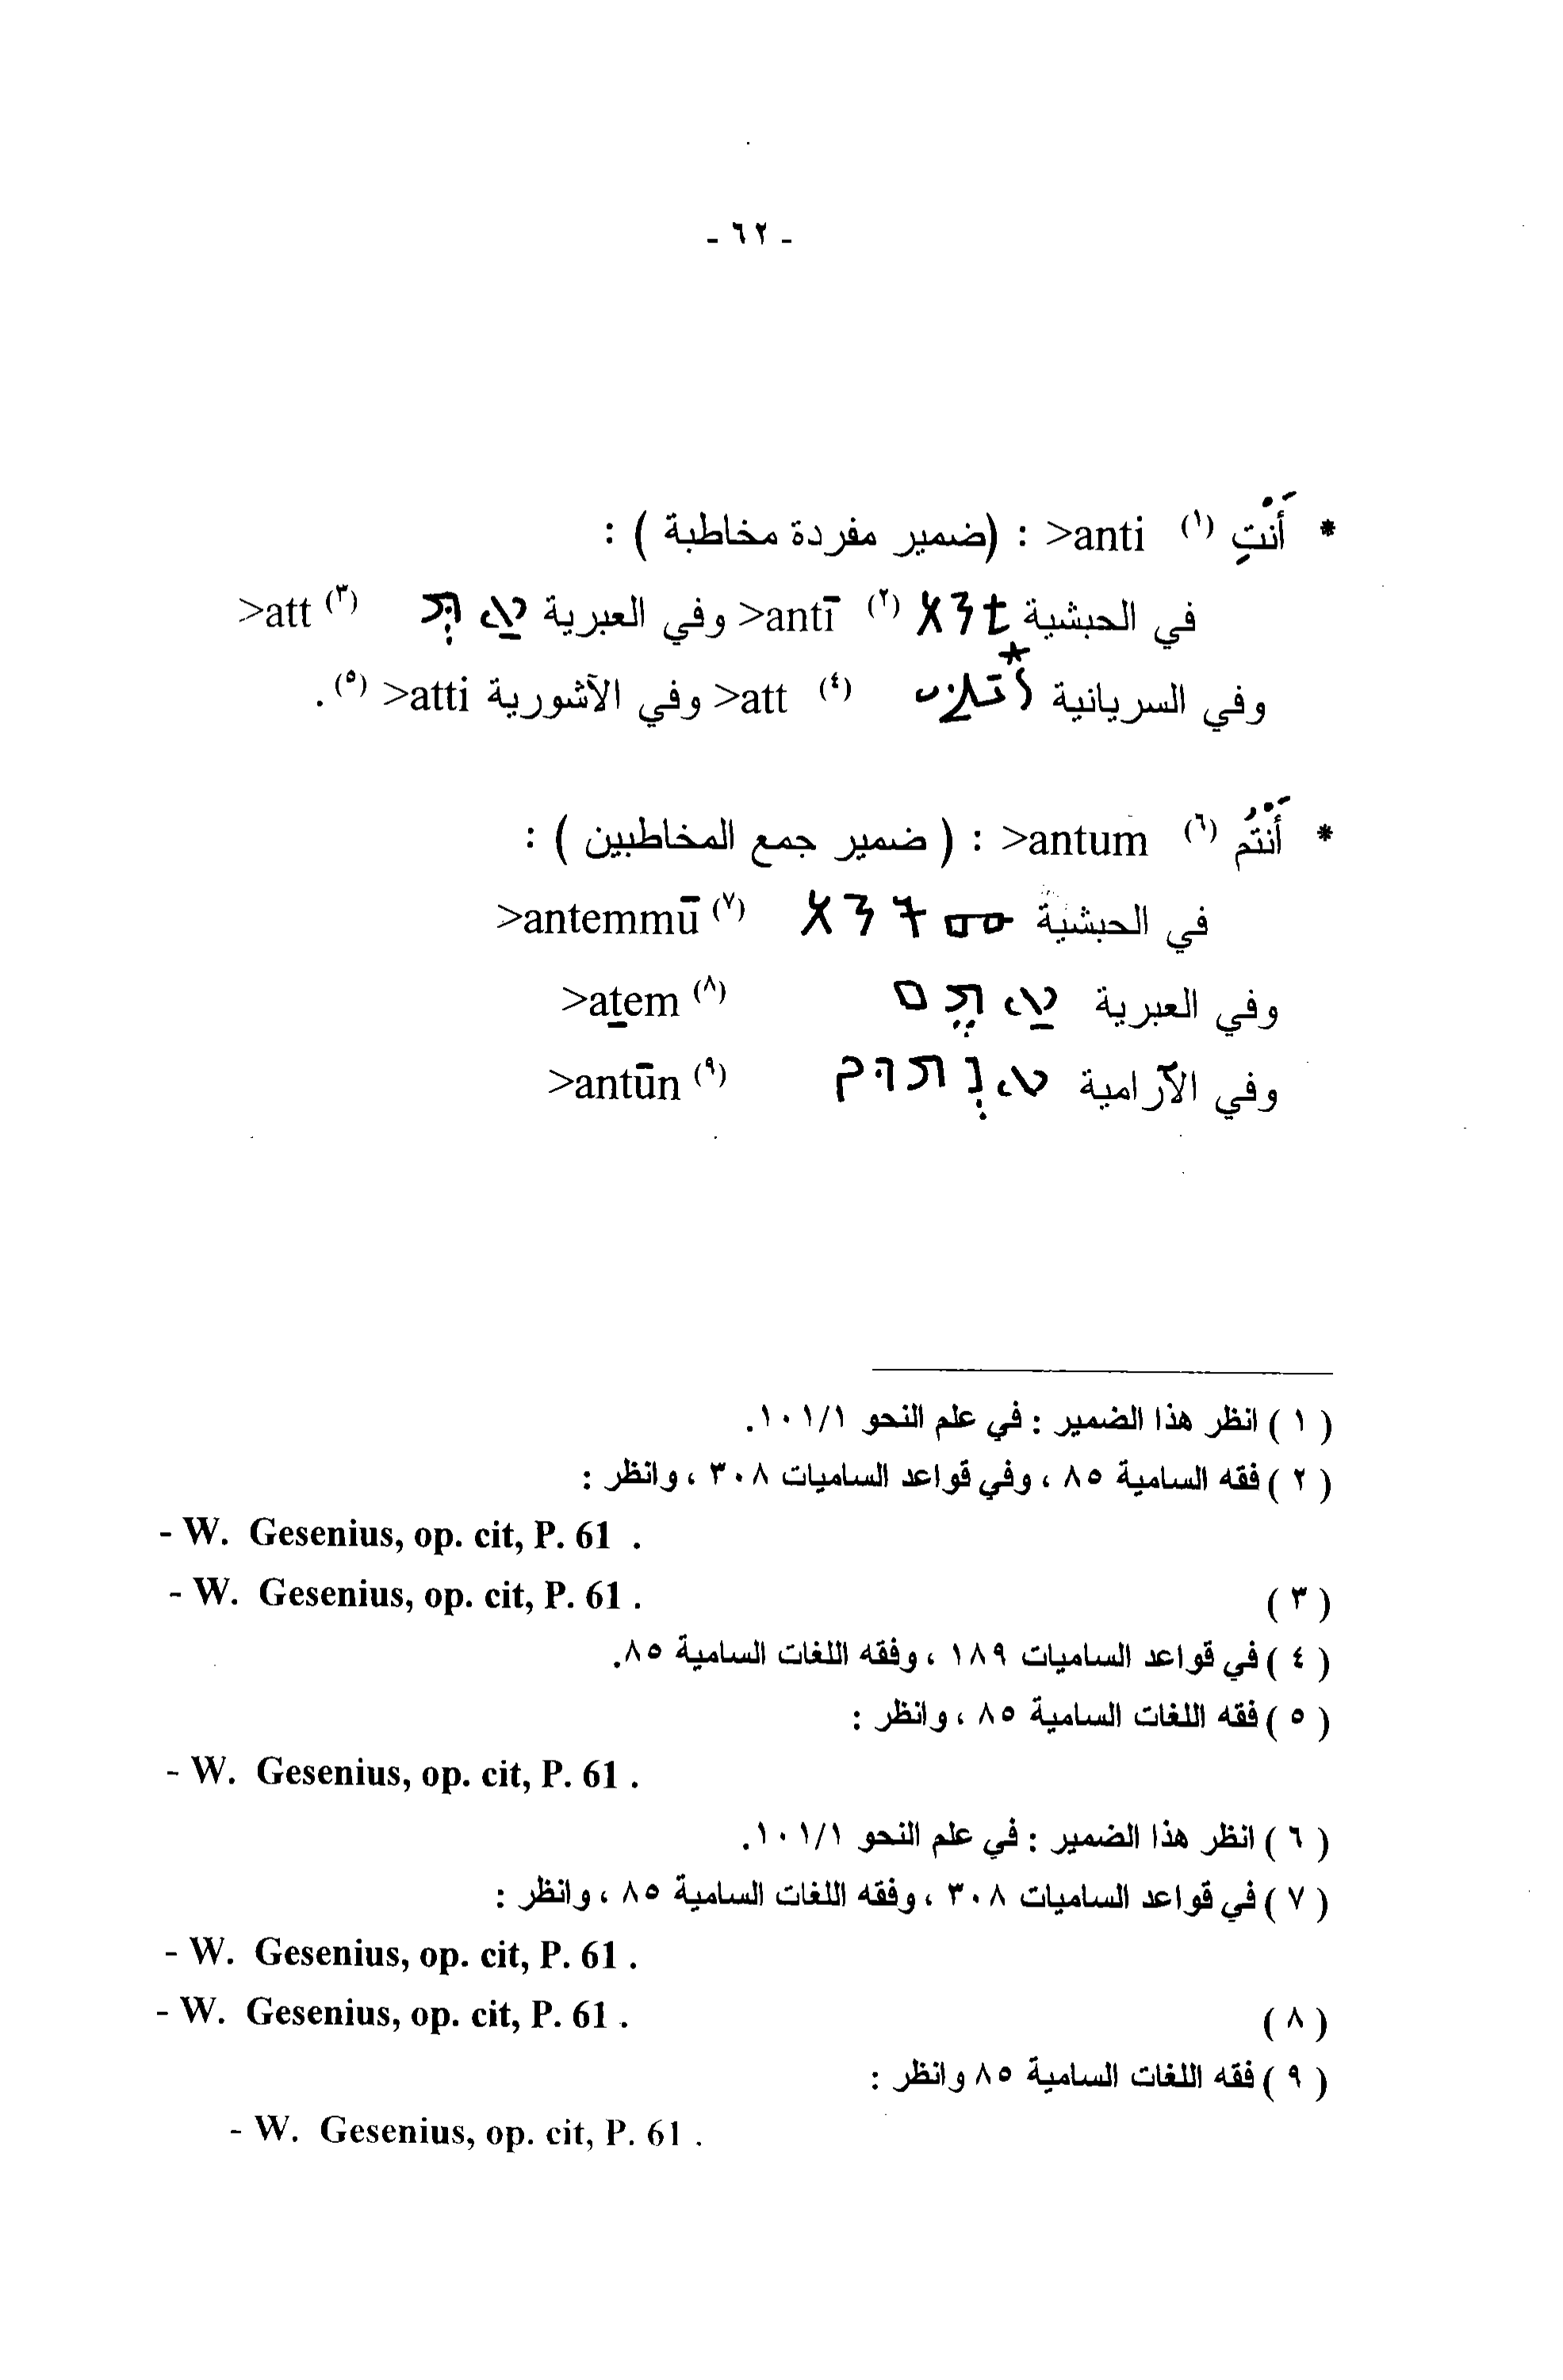 - ٦٢ -
* أَنْتِ (١) >anti : (ضمير مفردة مخاطبة ) :
في الحبشية አንቲ (٢) >antī وفي العبرية אַתְּ (٣) >att
وفي السريانية (٤) >att وفي الآشورية >atti (٥) .
* أَنْتُم (٦) >antum : ( ضمير جمع المخاطبين ) :
في الحبشية አንትሙ (٧) >antemmū
وفي العبرية אַתֶּם (٨) >aṯem
وفي الآرامية אנְתּוּן (٩) >antūn
( ١ ) انظر هذا الضمير : في علم النحو ١٠١/١.
( ٢ ) فقه السامية ٨٥ ، وفي قواعد الساميات ٣٠٨ ، وانظر :
- W. Gesenius, op. cit, P. 61 .
( ٣ ) - W. Gesenius, op. cit, P. 61 .
( ٤ ) في قواعد الساميات ١٨٩ ، وفقه اللغات السامية ٨٥.
( ٥ ) فقه اللغات السامية ٨٥ ، وانظر :
- W. Gesenius, op. cit, P. 61 .
( ٦ ) انظر هذا الضمير : في علم النحو ١٠١/١.
( ٧ ) في قواعد الساميات ٣٠٨ ، وفقه اللغات السامية ٨٥ ، وانظر :
- W. Gesenius, op. cit, P. 61 .
( ٨ ) - W. Gesenius, op. cit, P. 61 .
( ٩ ) فقه اللغات السامية ٨٥ وانظر :
- W. Gesenius, op. cit, P. 61 .